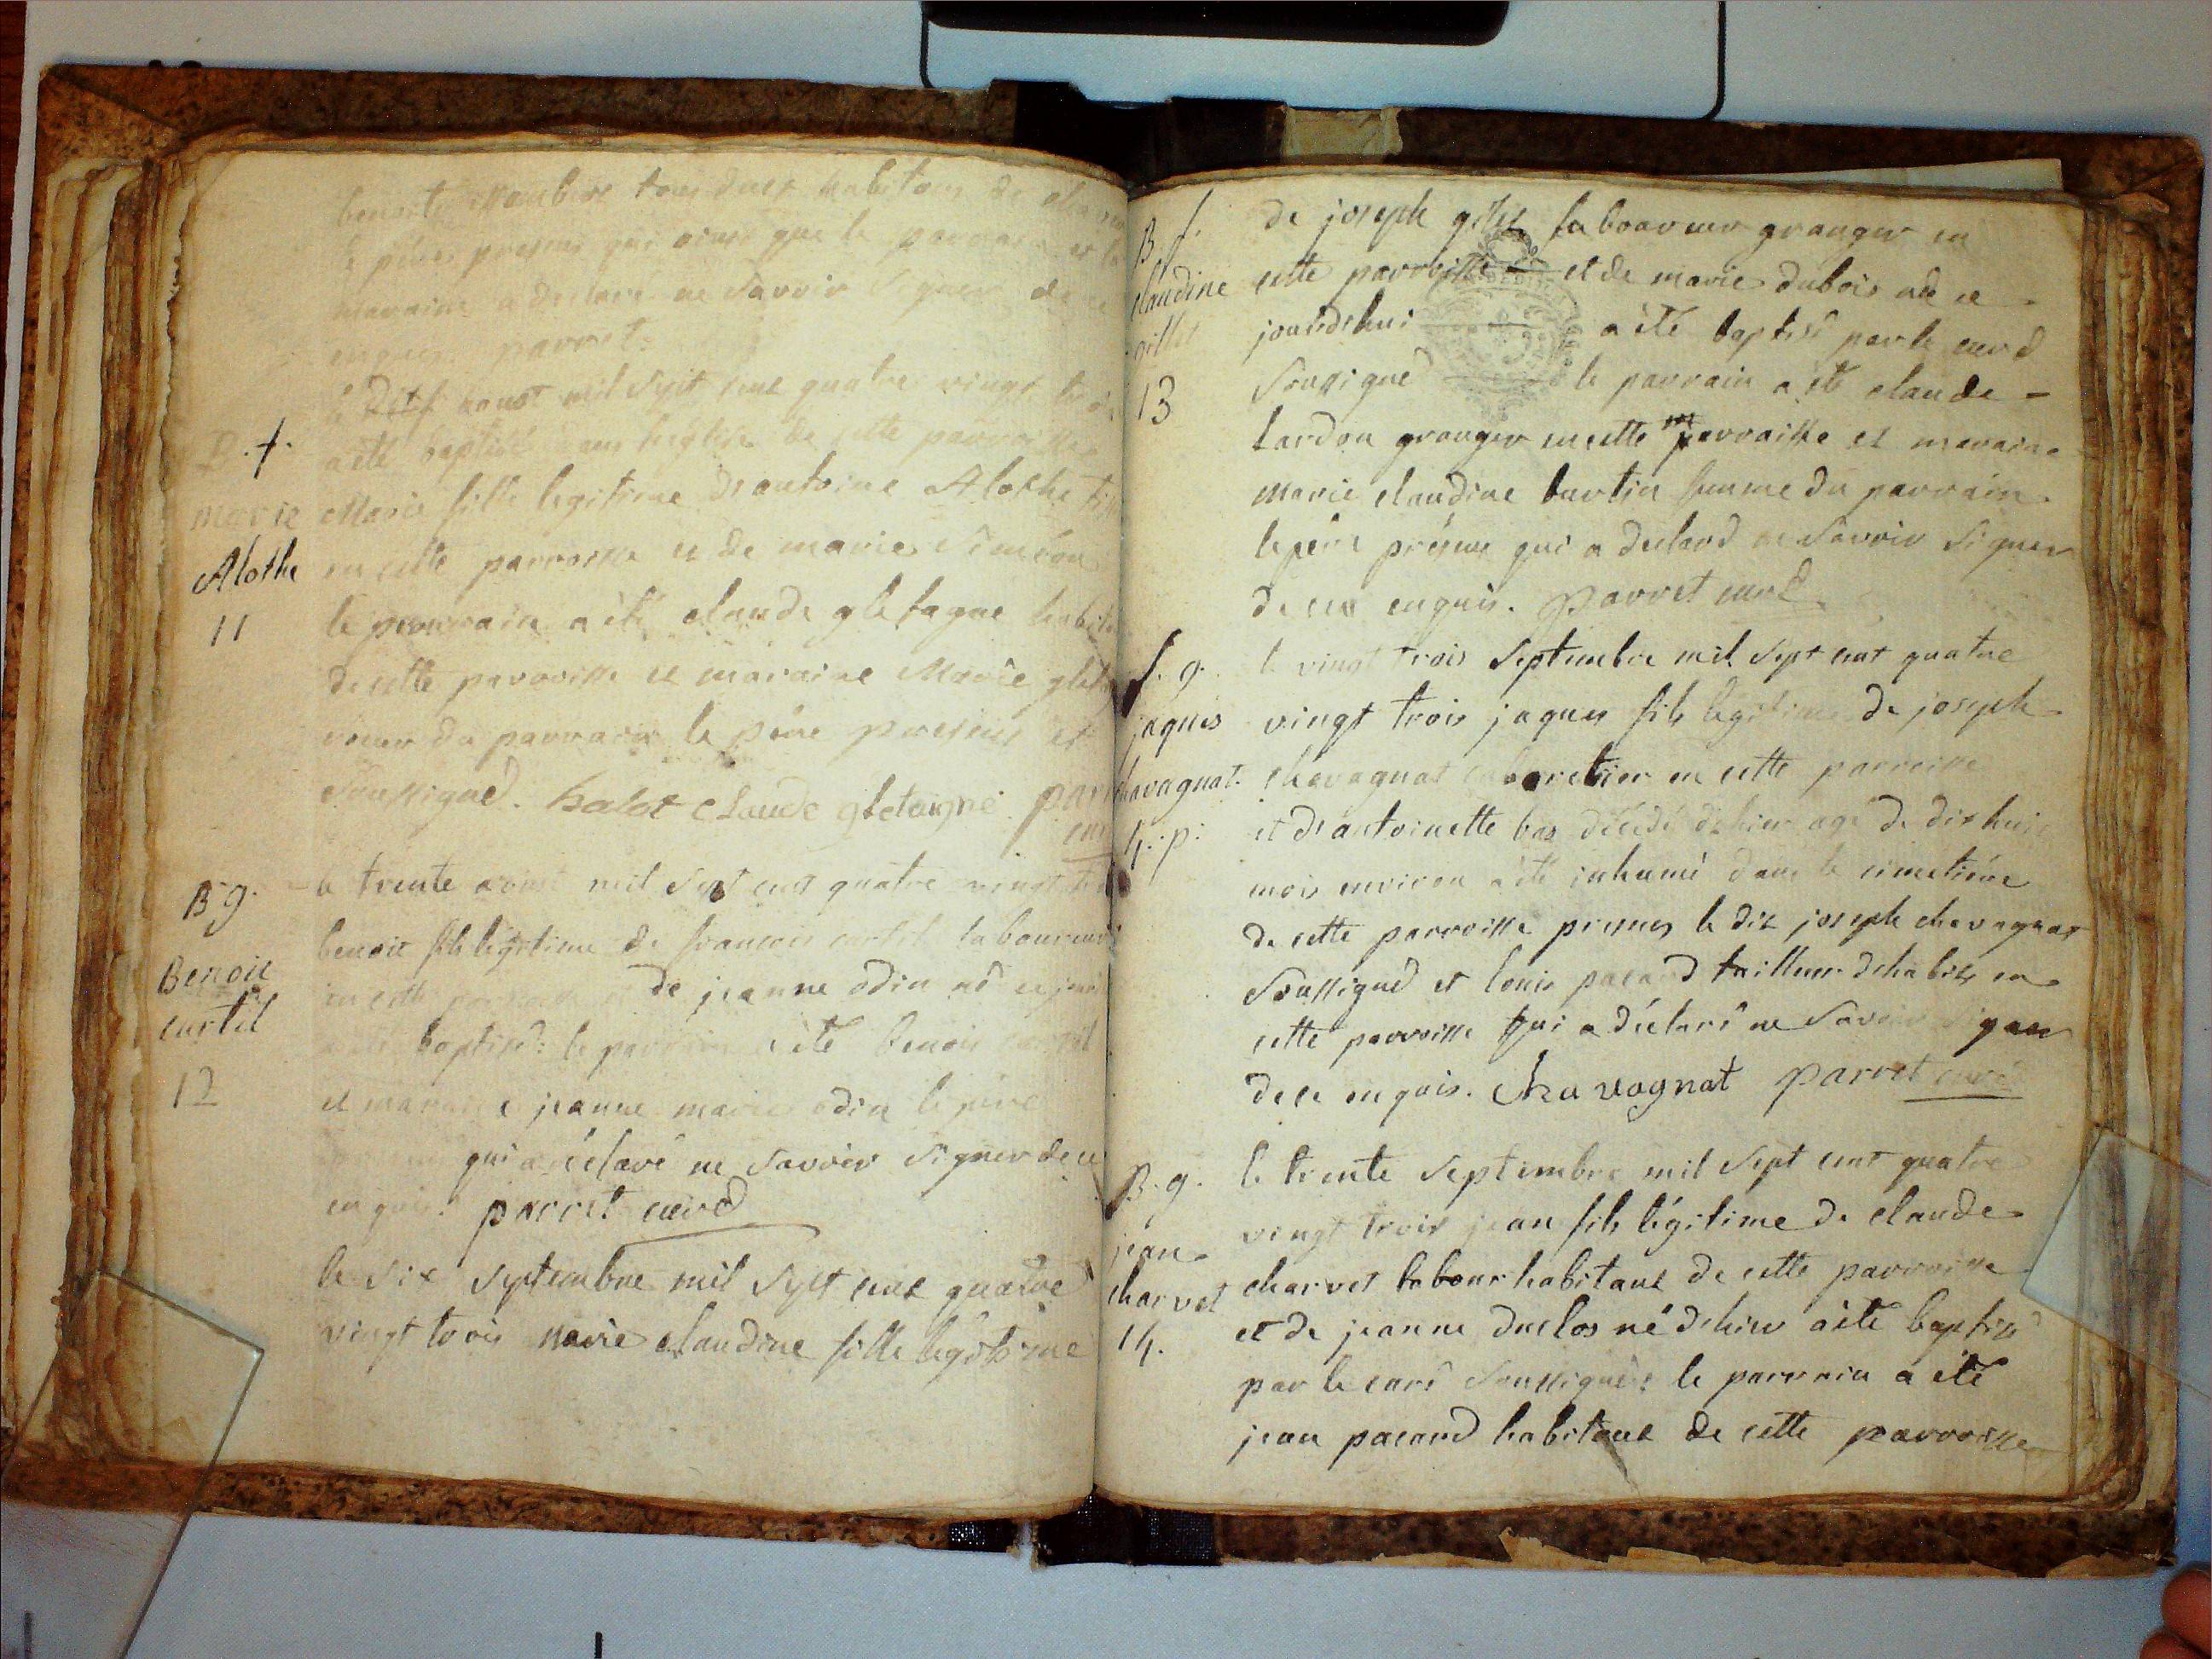 benoite tous deux habitans de
le père presens qui ainsi que le parrain et la
maraine a declaré ne Savoir Signer de ce
enquis parret
le dix aoust mil Sept cent quatre vingt trois
B. f.
a été baptisé dans l'église de cette parroisse
marie
Marie fille legitime d'antoine Alothe
Alothe
en cette parroisse et de marie Siméon
11
le parrain a été claude gletagne habit
de cette parroisse et maraine Marie glet
soeur du parrain le père presens et
Soussigné. halot claude gletaigne parret
curé
B g.
le trente aoust mil Sept cent quatre vingt trois
benoit fils legitime de francois curtil laboureur
Benoit
en cette parroisse et de jeanne odin né ce jour
curtil
a été baptisé: le parrain a été benoit curtil
12
et maraine jeanne marie odin le père
presens qui a déclaré ne Savoir Signer de ce
enquis. parret curé
le Six Septembre mil Sept cent quatre
vingt trois marie claudine fille légitime
B. f.
de joseph gillet laboureur granger en
claudine
cette parroisse et de marie dubois née ce
gillet
jourd'hui a été baptisé par le curé
13
Soussigné le parrain a été claude
lardon granger en cette parroisse et maraine
marie claudine burtin femme du parrain
le père présens qui a declaré ne Savoir Signer
de ce enquis. Parret curé
S. g.
le vingt trois Septembre mil Sept cent quatre
jaques
vingt trois jaques fils legitime de joseph
chavagnat
chavagnat cabaretier en cette parroisse
4. p.
et d'antoinette bas décédé d'hier agé de dix huit
mois environ a été inhumé dans le cimetière
de cette parroisse presens le dit joseph chavagnat
Soussigné et louis pacard tailleur d'habits en
cette parroisse qui a déclaré ne Savoir signer
de ce enquis. Chavagnat parret curé
B. g.
le trente Septembre mil Sept cent quatre
jean
vingt trois jean fils légitime de claude
charvet
charvet labour habitant de cette parroisse
14.
et de jeanne duclos né d'hier a été baptisé
par le curé Soussigné: le parrain a été
jean pacard habitant de cette parroisse